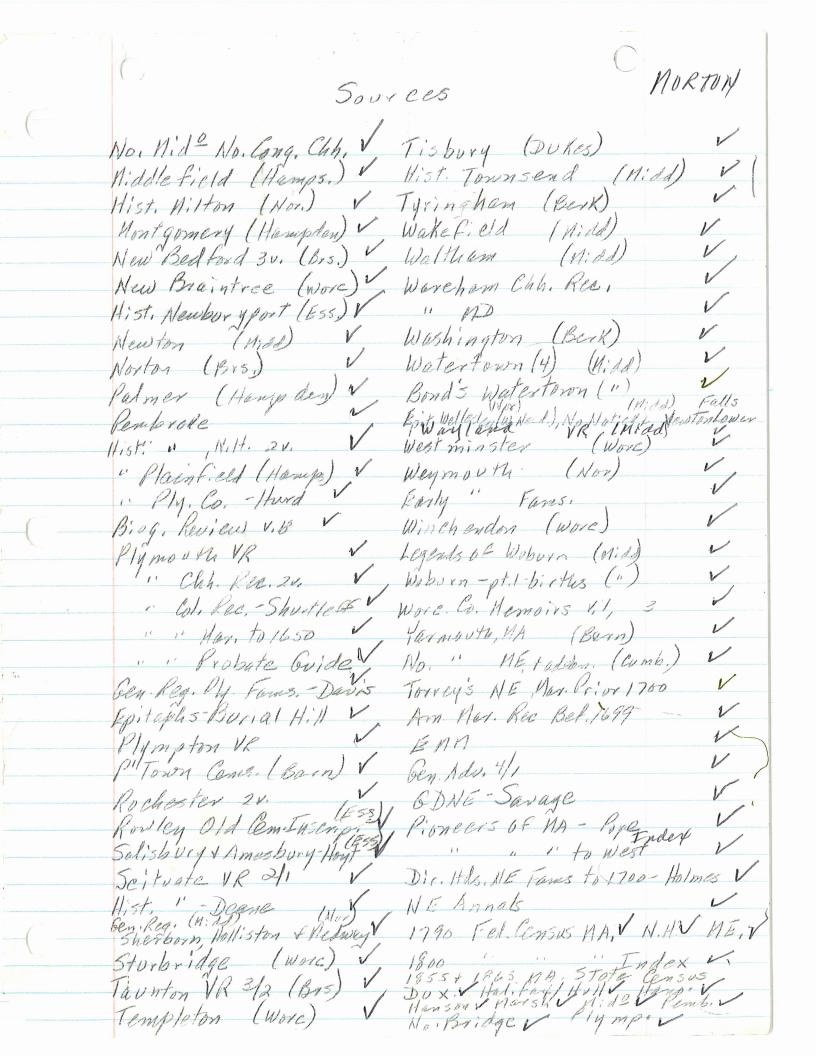 MORTON
Sources
No. Mid° No. Cong. Chh. ✓
Middlefield (Hamps.) ✓
Hist. Milton (Nor.) ✓
Montgomery (Hampton) ✓
New Bedford 3v. (Brs.) ✓
New Braintree (Worc) ✓
Hist. Newburyport (Ess.) ✓
Newton (Midd) ✓
Norton (Brs.) ✓
Palmer (Hampden) ✓
Pembroke ✓
Hist. " , N.H. 2v. ✓
" Plainfield (Hamps) ✓
" Ply. Co. - Hurd ✓
Biog. Review v.18 ✓
Plymouth VR ✓
" Chh. Rec. 2v. ✓
" Col. Rec. - Shurtleff ✓
" " Mar. to 1650 ✓
" " Probate Guide ✓
Gen. Reg. Ply Fams. - Davis ✓
Epitaphs - Burial Hill ✓
Plympton VR ✓
P'Town Cems. (Barn) ✓
Rochester 2v. ✓
Rowley Old Cem. Inscrip. (Ess) ✓
Salisbury & Amesbury - Hoyt (Ess) ✓
Scituate VR 2/1 ✓
Hist. " - Deane ✓
Gen. Reg. (Mid) (Nor)
Sherborn, Holliston & Medway ✓
Sturbridge (Worc) ✓
Taunton VR 3/2 (Brs) ✓
Templeton (Worc) ✓
Tisbury (Dukes) ✓
Hist. Townsend (Midd) ✓
Tyringham (Berk) ✓
Wakefield (Midd) ✓
Waltham (Midd) ✓
Wareham Chh. Rec. ✓
" MD ✓
Washington (Berk) ✓
Watertown (4) (Midd) ✓
Bond's Watertown (") ✓
(Midd) Falls
Newton Lower
Wayland VR (Midd)
Westminster (Worc) ✓
Weymouth (Nor) ✓
Early " Fams. ✓
Winchendon (Worc) ✓
Legends of Woburn (Midd) ✓
Woburn - pt.1 - births (") ✓
Worc. Co. Memoirs v.1, 3 ✓
Yarmouth, MA (Barn) ✓
No. " ME, + addn. (Cumb.) ✓
Torrey's NE Mar. Prior 1700 ✓
Am Mar. Rec Bef. 1699 ✓
EMM ✓
Gen. Adv. 4/1 ✓
GDNE - Savage ✓
Pioneers of MA - Pope ✓
" " " to West Index ✓
Dir. Hds. NE Fams to 1700 - Holmes ✓
NE Annals ✓
1790 Fel. Census MA, ✓ N.H ✓ ME, ✓
1800 " " Index ✓
1855 & 1865 MA. State Census
Dux. ✓ Halifax ✓ Hull ✓ ✓
Hanson ✓ Marsh ✓ Mid° ✓ Pemb. ✓
No. Bridge ✓ Plymp. ✓